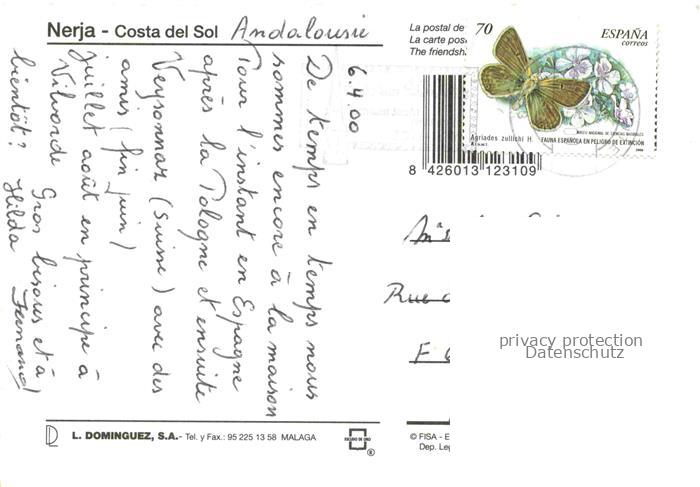 Nerja - Costa del Sol Andalousie
La postal de
La carte pos
The friendsh
70
ESPAÑA
correos
MUSEO NACIONAL DE CIENCIAS NATURALES
Agriades zullichi H.
FAUNA ESPAÑOLA EN PELIGRO DE EXTINCIÓN
8 426013 123109
6.4.00
De temps en temps nous
sommes encore à la maison
Pour l'instant en Espagne
après la Pologne et ensuite
Veysonnaz (Suisse) avec des
amis (fin juin)
juillet août en principe à
Vilvorde
Gros bisous et à
bientôt?
Hilda Fernand
Rue
F
privacy protection
Datenschutz
L. DOMINGUEZ, S.A.- Tel. y Fax.: 95 225 13 58 MALAGA
ESCUDO DE ORO
®
© FISA - E
Dep. Leg